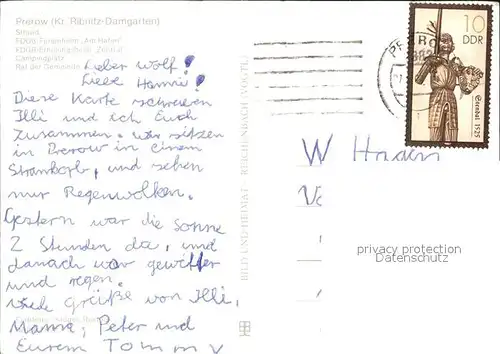 Prerow (Kr. Ribnitz-Damgarten)
Strand
FDGB-Ferienheim "Am Hafen"
Campingplatz
Rat der Gemeinde
Lieber Wolf!
Liebe Hanni!
Diese Karte schreiben
Illi und ich Euch
zusammen. Wir sitzen
in Prerow in einem
Strankorb, und sehen
nur Regenwolken.
Gestern war die Sonne
2 Stunden da, und
danach war gewitter
und regen.
Viele Grüße von Illi,
Mama, Peter und
Eurem Tommy
BILD UND HEIMAT REICHENBACH (VOGTL)
10
DDR
Stendal 1525
W
privacy protection
Datenschutz